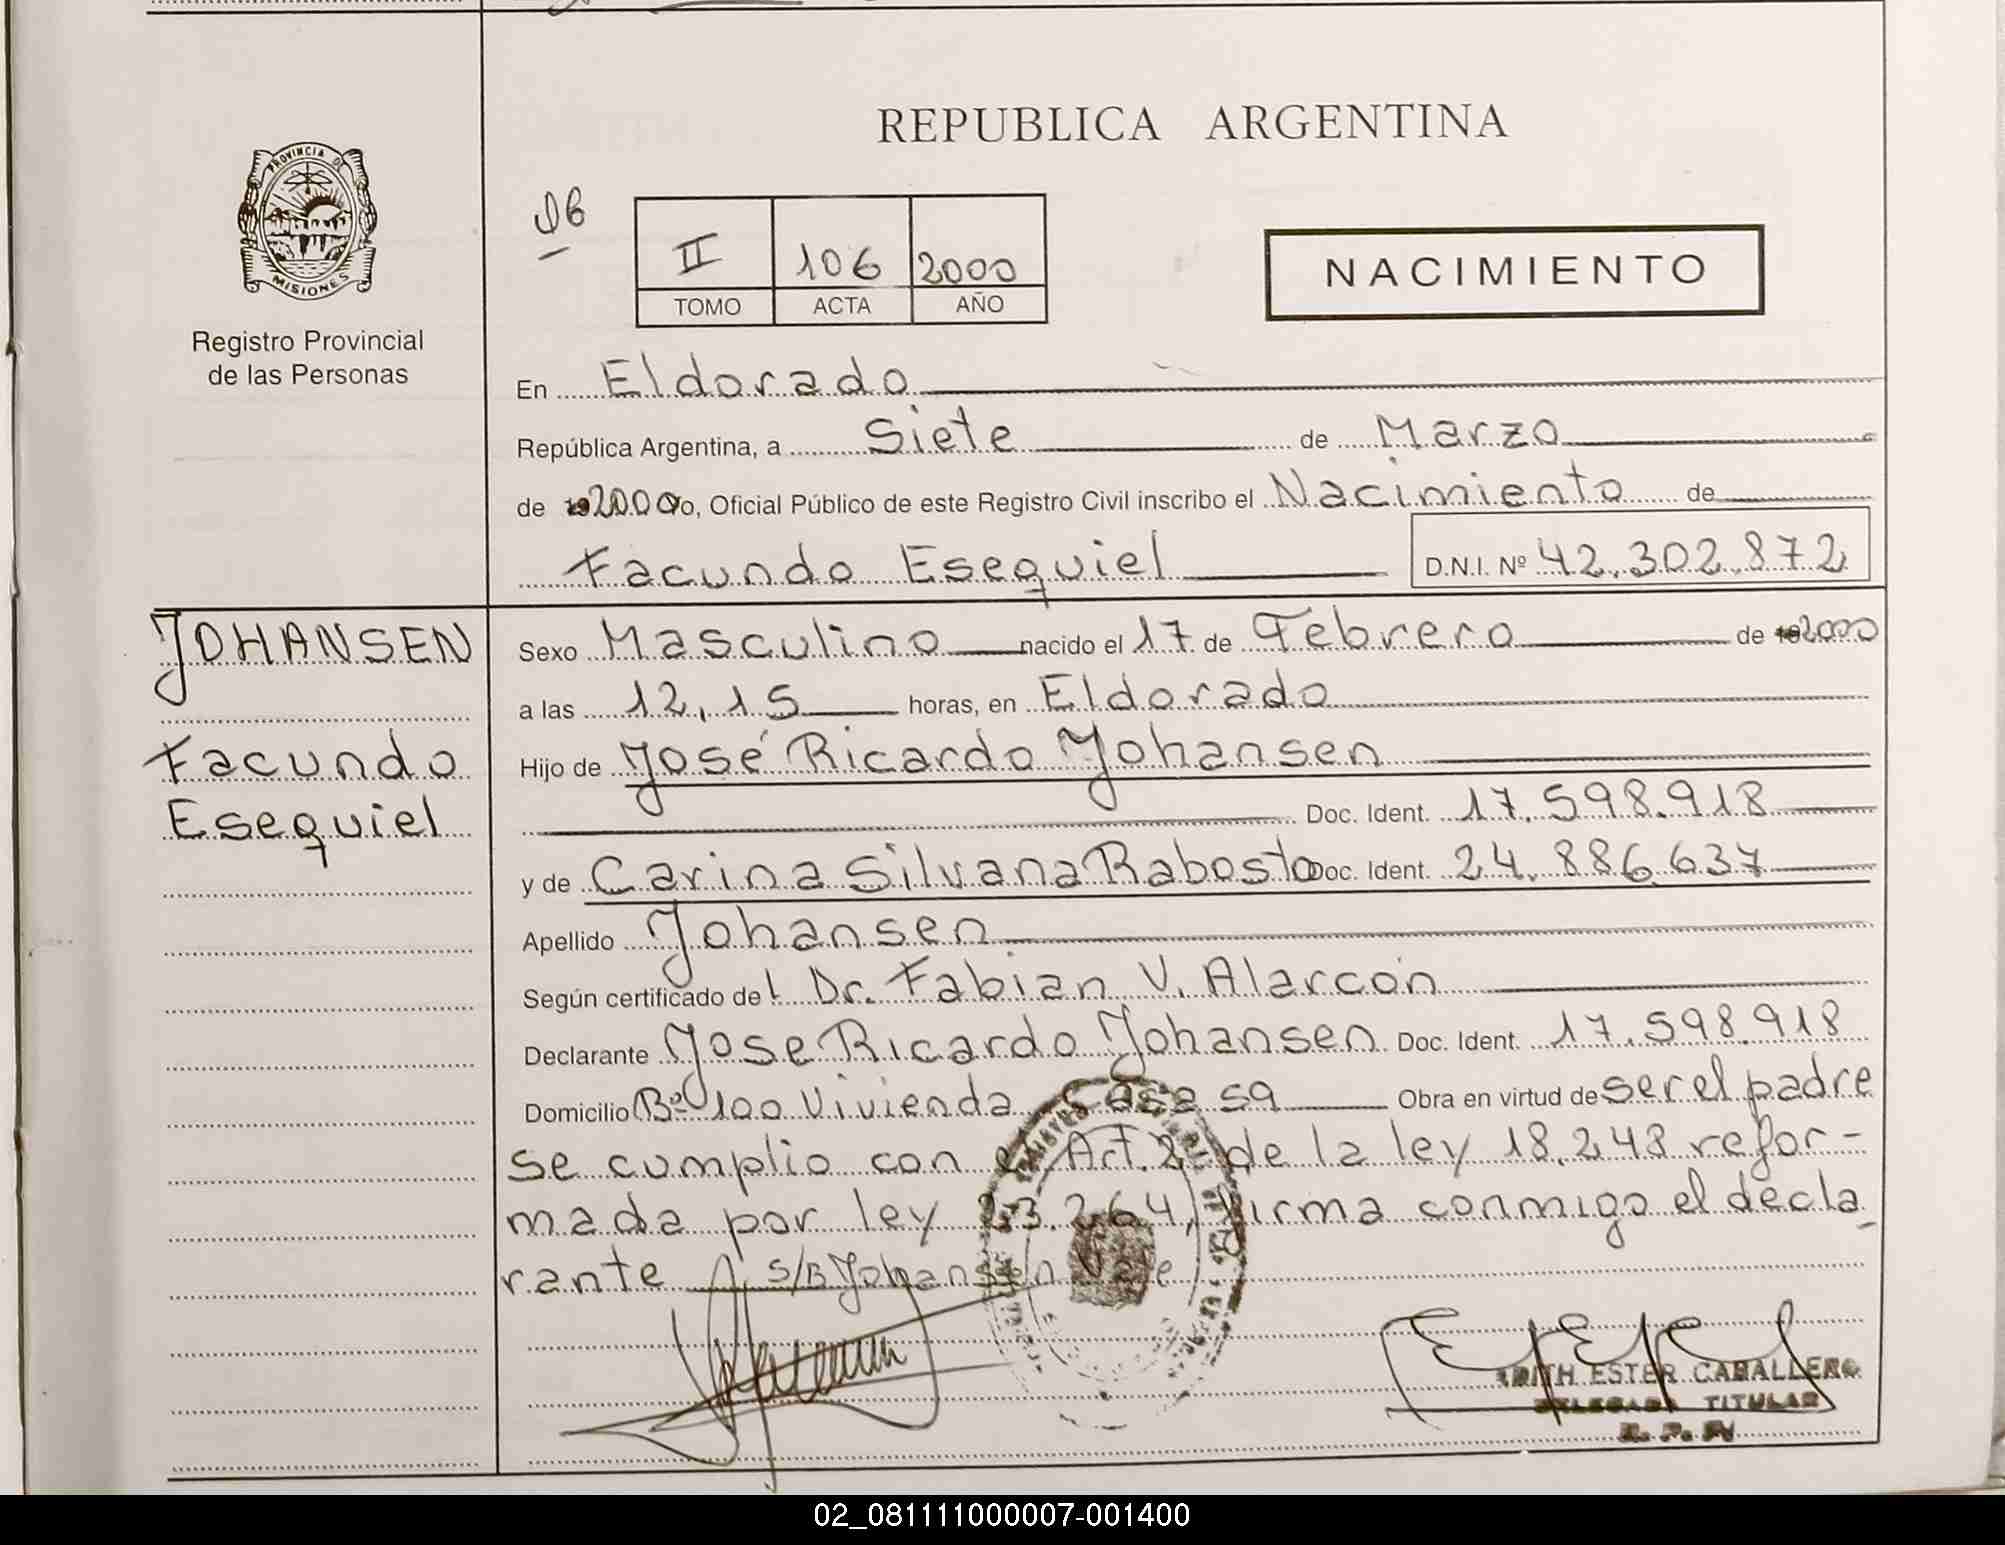 REPUBLICA ARGENTINA
PROVINCIA DE
MISIONES
Registro Provincial
de las Personas
06
II 106 2000
TOMO ACTA AÑO
NACIMIENTO
En Eldorado
República Argentina, a Siete de Marzo
de 2000 yo, Oficial Público de este Registro Civil inscribo el Nacimiento de
Facundo Esequiel D.N.I. Nº 42.302.872
JOHANSEN
Facundo
Esequiel
Sexo Masculino nacido el 17 de Febrero de 2000
a las 12,15 horas, en Eldorado
Hijo de José Ricardo Johansen
Doc. Ident. 17.598.918
y de Carina Silvana Rabosto Doc. Ident. 24.886.637
Apellido Johansen
Según certificado del Dr. Fabian V. Alarcón
Declarante Jose Ricardo Johansen Doc. Ident. 17.598.918
Domicilio Bº 100 Vivienda Casa 59 Obra en virtud de ser el padre
se cumplio con el Art. 2 de la ley 18.248 refor-
mada por ley 23.264, firma conmigo el decla
rante S/B Johansen Vale
EDITH ESTER CABALLERO
DELEGADA TITULAR
R. P. P.
02_081111000007-001400